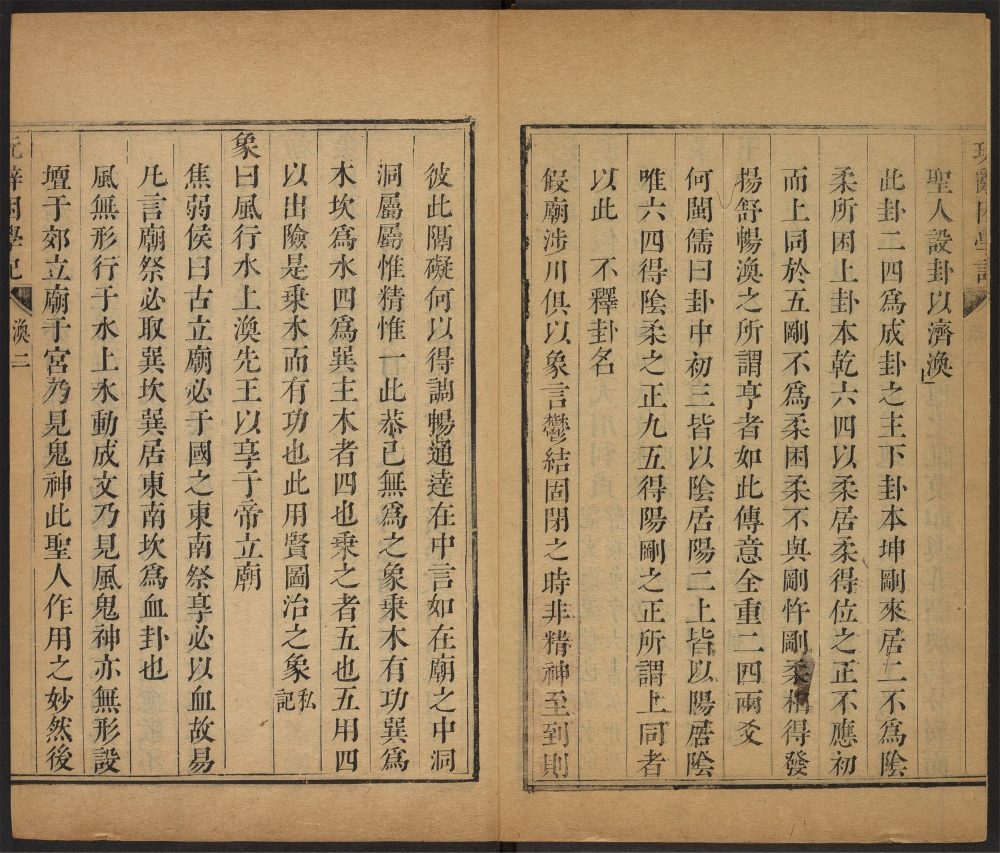 聖人設卦以濟渙
此卦二四為成卦之主下卦本坤剛來居二不為陰
柔所困上卦本乾六四以柔居柔得位之正不應初
而上同於五剛不為柔困柔不與剛忤剛柔相得發
揚舒暢渙之所謂亨者如此傳意全重二四兩爻
何閩儒曰卦中初三皆以陰居陽二上皆以陽居陰
唯六四得陰柔之正九五得陽剛之正所謂上同者
以此　不釋卦名
假廟涉川俱以象言鬱結固閉之時非精神至到則
彼此隔礙何以得調暢通達在中言如在廟之中洞
洞屬屬惟精惟一此恭己無為之象乘木有功巽為
木坎為水四為巽主木者四也乘之者五也五用四
以出險是乘木而有功也此用賢圖治之象私記
象曰風行水上渙先王以享于帝立廟
焦弱侯曰古立廟必于國之東南祭享必以血故易
凡言廟祭必取巽坎巽居東南坎為血卦也
風無形行于水上水動成文乃見風鬼神亦無形設
壇于郊立廟于宮乃見鬼神此聖人作用之妙然後
渙二